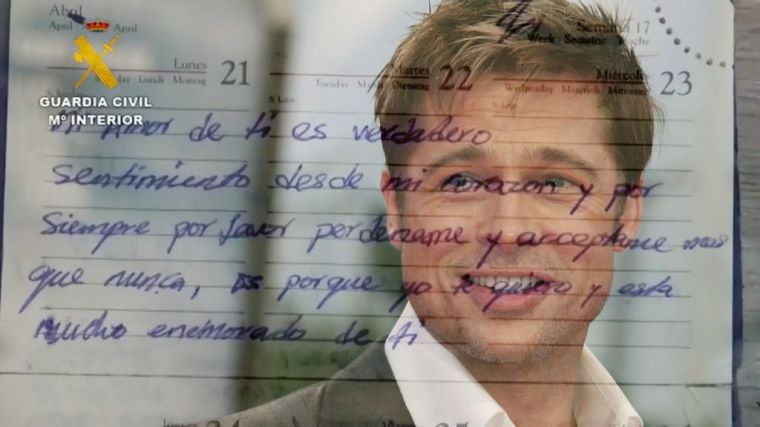 Abril
April April
Lunes
Lundi Montag
21
Martes
Tuesday Mardi Dienstag
22
Semana 17
Week Semaine Woche
Miércoles
Wednesday Mercredi Mittwoch
23
GUARDIA CIVIL
Mº INTERIOR
Mi amor de ti es verdadero
Sentimiento desde mi corazon y por
siempre por favor perdename y acceptame mas
que nunca, es porque yo te quiero y esta
mucho enemorado de ti
24
25